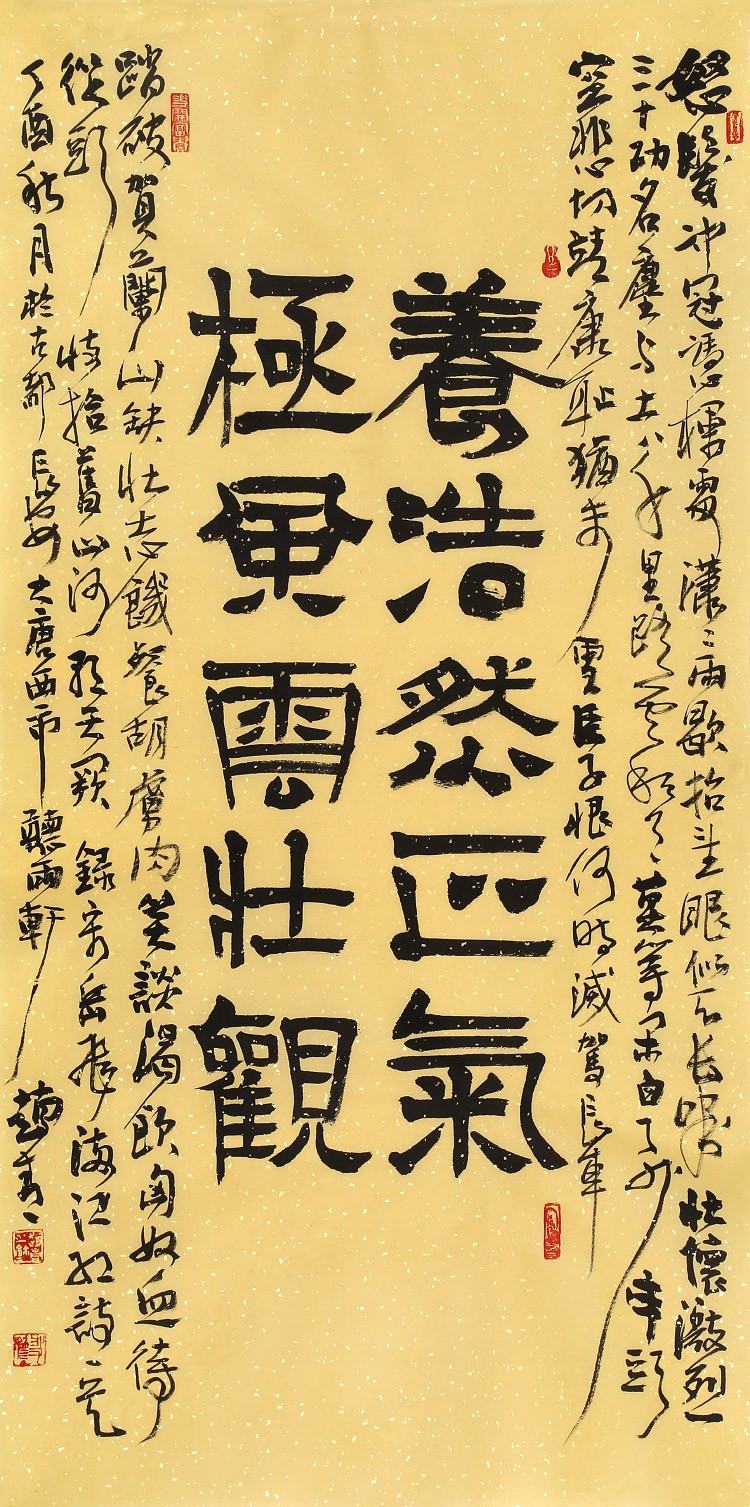 怒髮冲冠憑欄處瀟瀟雨歇抬望眼仰天長嘯壯懷激烈
三十功名塵与土八千里路雲和月莫等閑白了少年頭
空悲切靖康耻猶未雪臣子恨何時滅駕長車
養浩然正氣
極風雲壯觀
踏破賀蘭山缺壯志饑餐胡虜肉笑談渴飲匈奴血待
從頭收拾舊山河朝天闕錄宋岳飛滿江紅
丁酉秋月於古都長安大唐西市聽雨軒趙